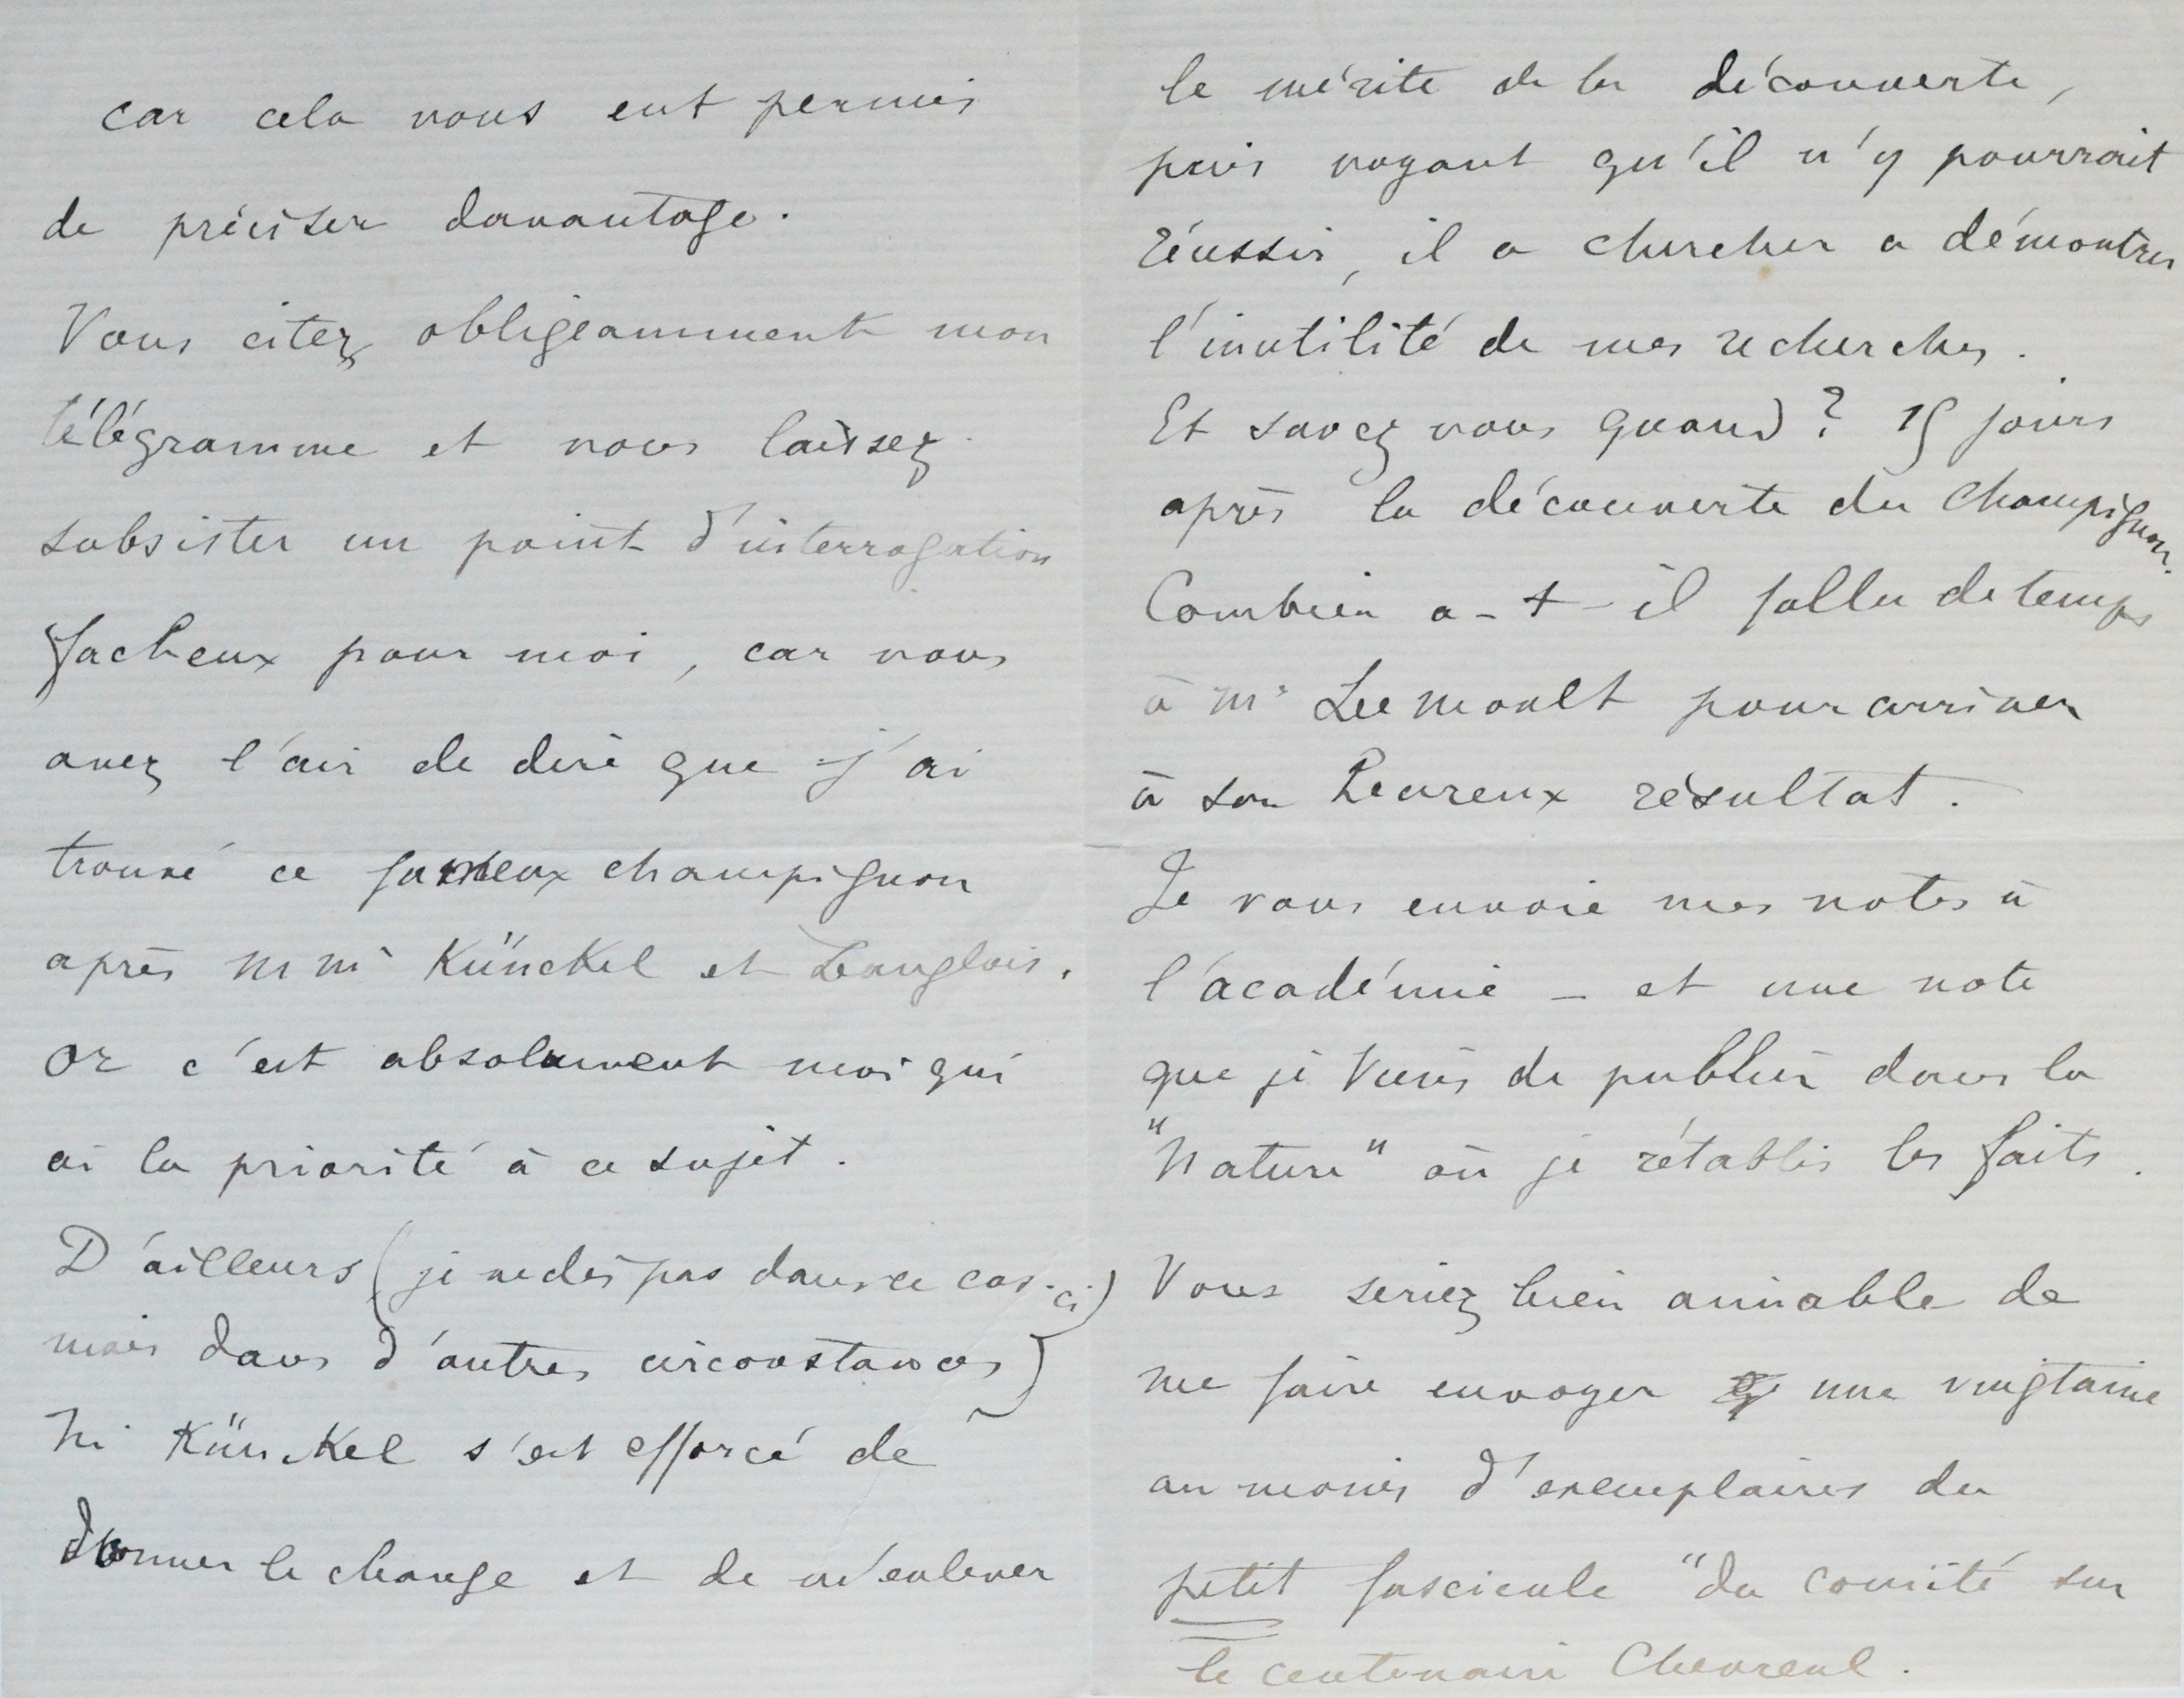 car cela vous eut permis
de préciser davantage.
Vous citez obligeamment mon
télégramme et vous laissez
subsister un point d'interrogation
facheux pour moi, car vous
avez l'air de dire que j'ai
trouvé ce fameux champignon
après MM. Künckel et Langlois.
Or c'est absolument moi qui
ai la priorité à ce sujet.
D'ailleurs (je ne dis pas dans ce cas-ci)
mais dans d'autres circonstances)
M. Künckel s'est efforcé de
donner le change et de m'enlever
le mérite de la découverte,
puis voyant qu'il n'y pourrait
réussir, il a chercher a démontrer
l'inutilité de mes recherches.
Et savez vous quand ? 15 jours
après la découverte du champignon.
Combien a-t-il fallu de temps
à Mr Le Moult pour arriver
à son heureux résultat.
Je vous envoie mes notes à
l'académie - et une note
que je viens de publier dans la
"Nature" où je rétablis les faits.
Vous seriez bien aimable de
me faire envoyer une vingtaine
au moins d'exemplaires du
petit fascicule "du comité sur
le centenaire Chevreul.